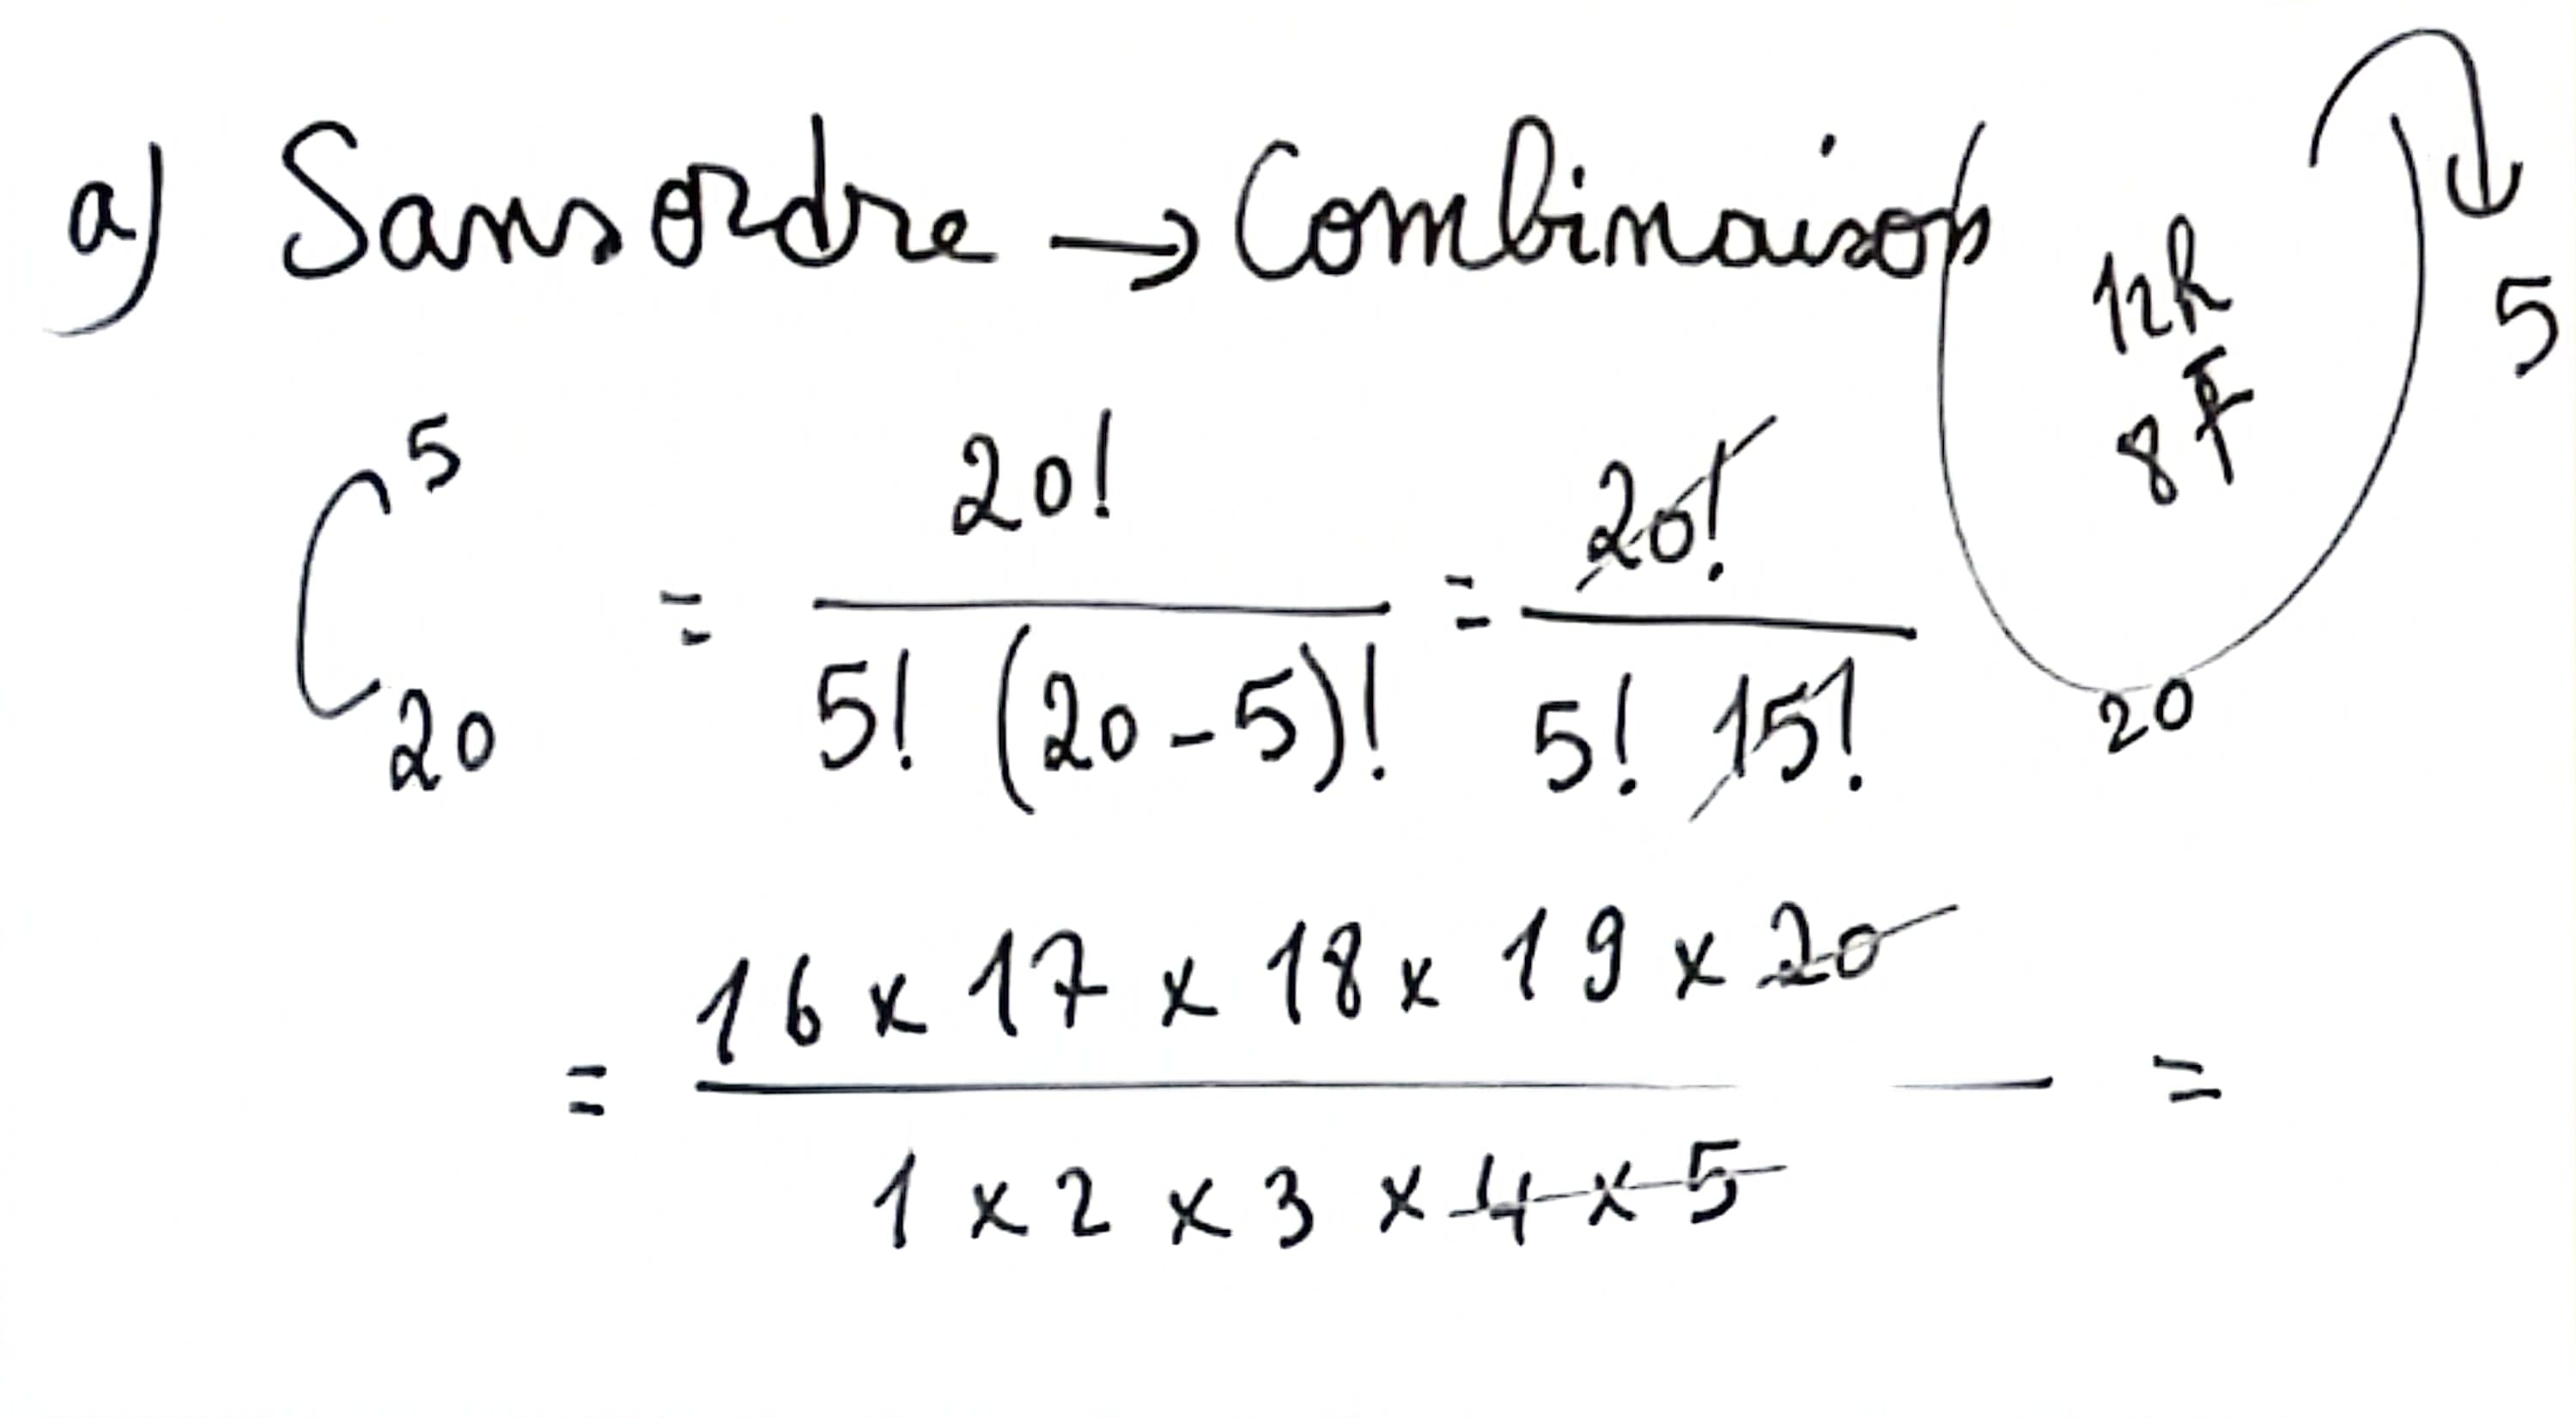 a) Sans ordre → Combinaison
12h
8F
5
20
C_{20}^{5} = 20! / 5! (20-5)! = 20! / 5! 15!
= 16 x 17 x 18 x 19 x 20 / 1 x 2 x 3 x 4 x 5 =